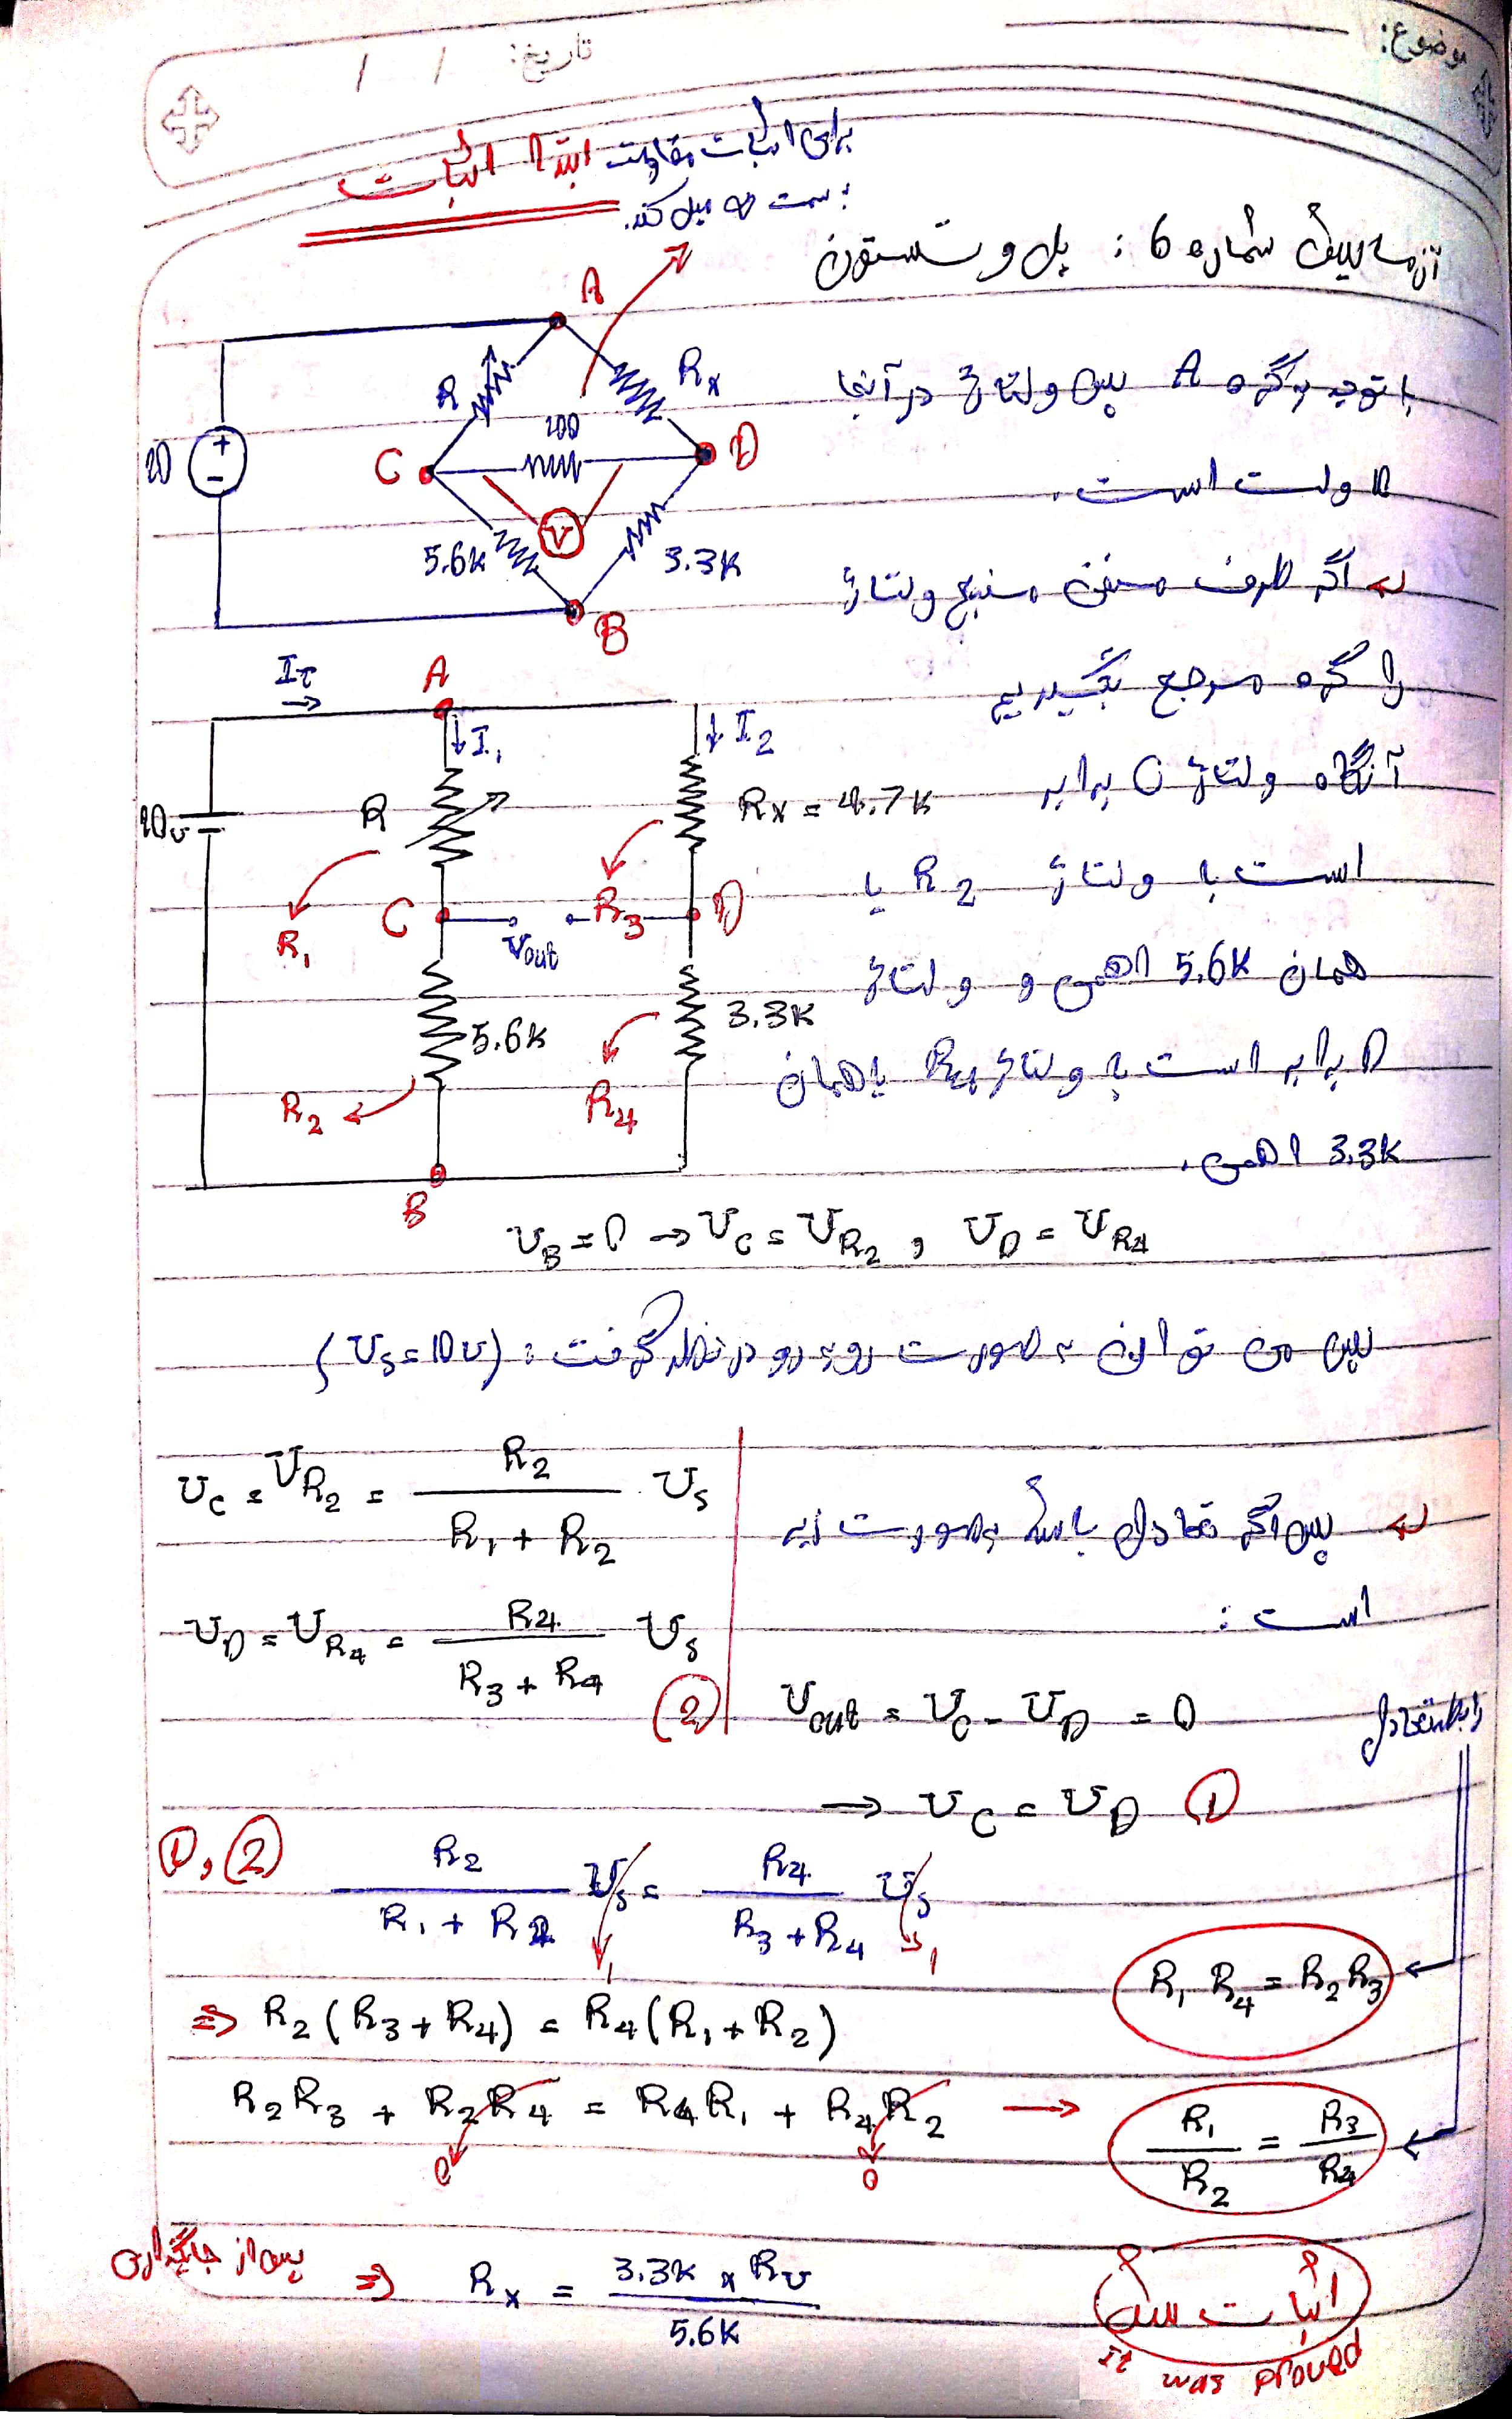 موضوع:
تاریخ: / /
برای اثبات مقاومت ابتدا اثبات
به سمت ∞ میل کند.
آزمایش شماره 6 : پل وتستون
A
R
Rx
100
C
D
V
5.6K
3.3K
B
10
با توجه به گره A پس ولتاژ در آنجا
10 ولت است.
اگر طرف منفی منبع ولتاژ
را گره مرجع بگیریم
آنگاه ولتاژ C برابر
است با ولتاژ R2 یا
همان 5.6K اهمی و ولتاژ
D برابر است با ولتاژ R4 یا همان
3.3K اهمی.
IT
A
I1
I2
10v
R
Rx = 4.7K
R1
C
Vout
R3
D
5.6K
3.3K
R2
R4
B
VB = 0 → VC = VR2 , VD = VR4
پس می توان به صورت روبه رو در نظر گرفت : (VS = 10v)
VC = VR2 = R2 / (R1 + R2) VS
VD = VR4 = R4 / (R3 + R4) VS
(2)
پس اگر تعادل باشد بصورت زیر
است :
Vout = VC - VD = 0
رابطه تعادل
→ VC = VD (1)
(1), (2)
R2 / (R1 + R2) VS = R4 / (R3 + R4) VS
1 1
⇒ R2 (R3 + R4) = R4 (R1 + R2)
R1 R4 = R2 R3
R2R3 + R2R4 = R4R1 + R4R2 →
0 0
R1 / R2 = R3 / R4
پس از جایگذاری ⇒ Rx = 3.3K × RV / 5.6K
اثبات شد
It was proved